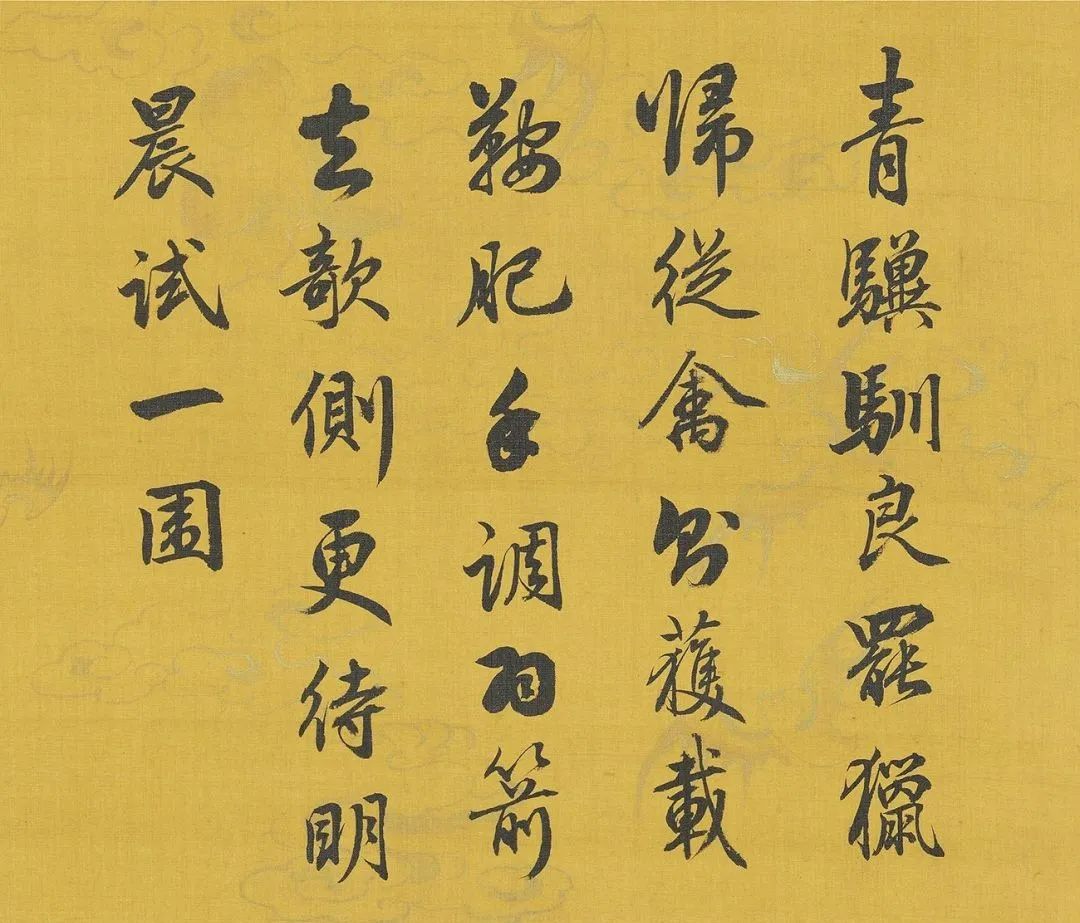 青驥馴良罷獵
歸從禽所獲載
鞍肥手調羽箭
去欹側更待明
晨試一圍